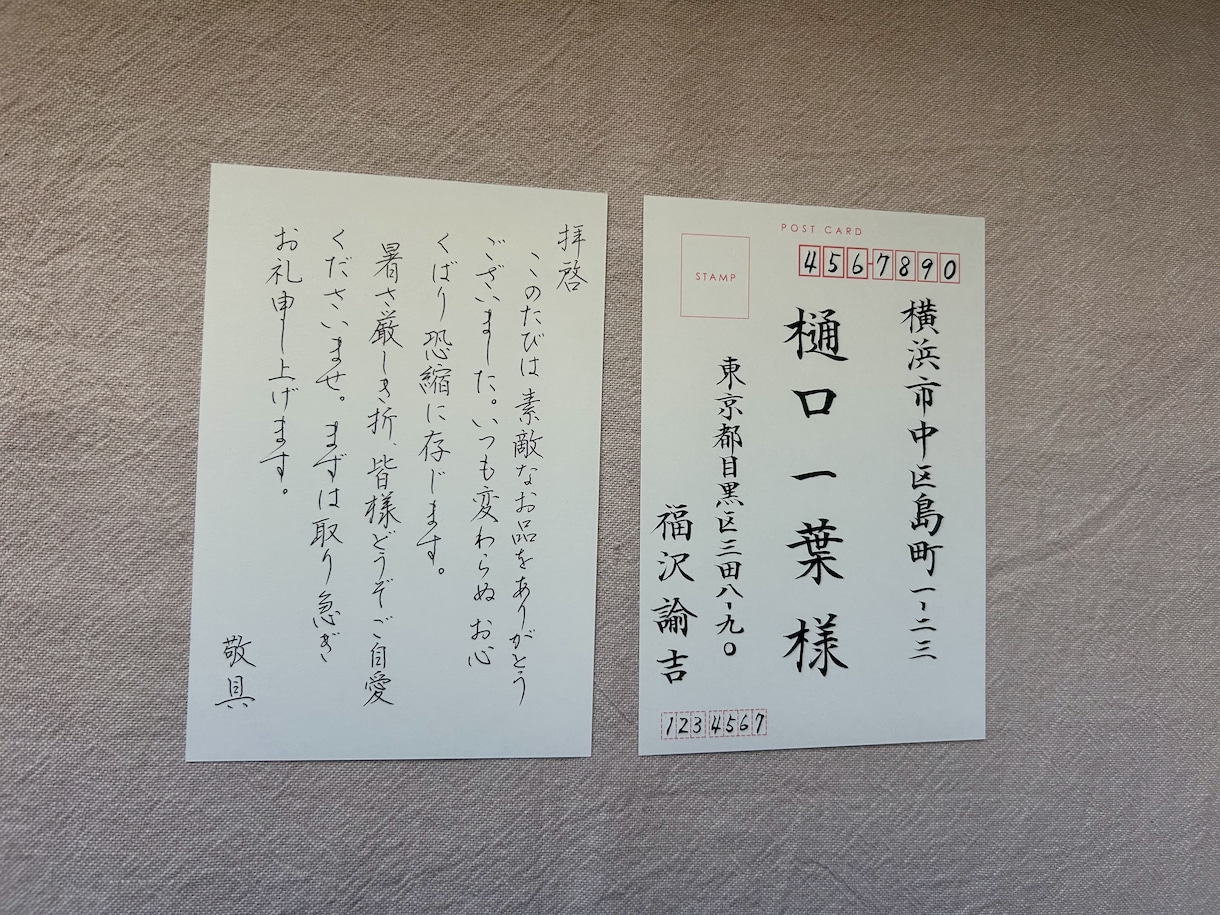 拝啓
このたびは素敵なお品をありがとう
ございました。いつも変わらぬお心
くばり恐縮に存じます。
暑さ厳しき折、皆様どうぞご自愛
くださいませ。まずは取り急ぎ
お礼申し上げます。
敬具
POST CARD
STAMP
456-7890
横浜市中区島町一-二三
樋口一葉様
東京都目黒区三田八-九〇
福沢諭吉
1234567